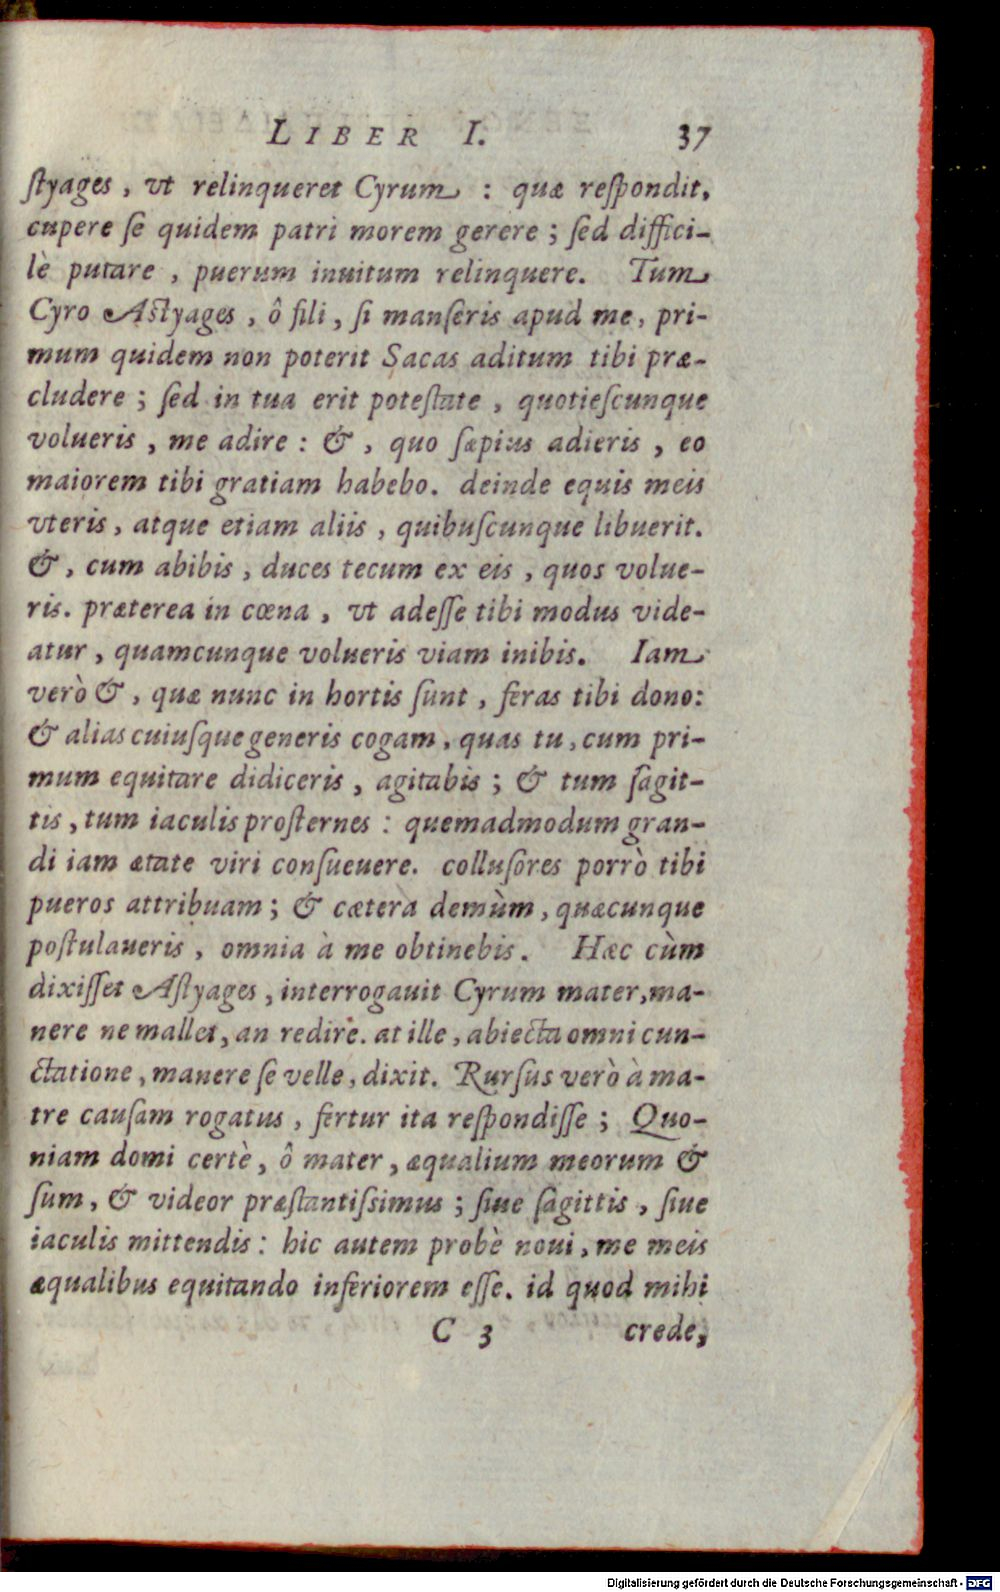 LIBER I. 37
ſtyages, vt relinqueret Cyrum : quæ reſpondit,
cupere ſe quidem patri morem gerere ; ſed diffici-
lè putare , puerum inuitum relinquere. Tum
Cyro Aſtyages , ô fili , ſi manſeris apud me, pri-
mum quidem non poterit Sacas aditum tibi præ-
cludere ; ſed in tua erit poteſtate , quotieſcunque
volueris , me adire : & , quo ſæpius adieris , eo
maiorem tibi gratiam habebo. deinde equis meis
vteris , atque etiam aliis , quibuſcunque libuerit.
& , cum abibis , duces tecum ex eis , quos volue-
ris. præterea in cœna , vt adeſſe tibi modus vide-
atur , quamcunque volueris viam inibis. Iam
verò & , quæ nunc in hortis ſunt , feras tibi dono:
& alias cuiuſque generis cogam , quas tu, cum pri-
mum equitare didiceris , agitabis ; & tum ſagit-
tis , tum iaculis proſternes : quemadmodum gran-
di iam ætate viri conſueuere. colluſores porrò tibi
pueros attribuam ; & cæterà demùm , quæcunque
poſtulaueris , omnia à me obtinebis. Hæc cùm
dixiſſet Aſtyages , interrogauit Cyrum mater, ma-
nere ne mallet, an redire. at ille , abiecta omni cun-
ctatione , manere ſe velle, dixit. Rurſus verò à ma-
tre cauſam rogatus , fertur ita reſpondiſſe ; Quo-
niam domi certè , ô mater , æqualium meorum &
ſum , & videor præſtantiſsimus ; ſiue ſagittis , ſiue
iaculis mittendis : hic autem probè noui , me meis
æqualibus equitando inferiorem eſſe. id quod mihi
C 3 crede,
Digitalisierung gefördert durch die Deutsche Forschungsgemeinschaft - DFG